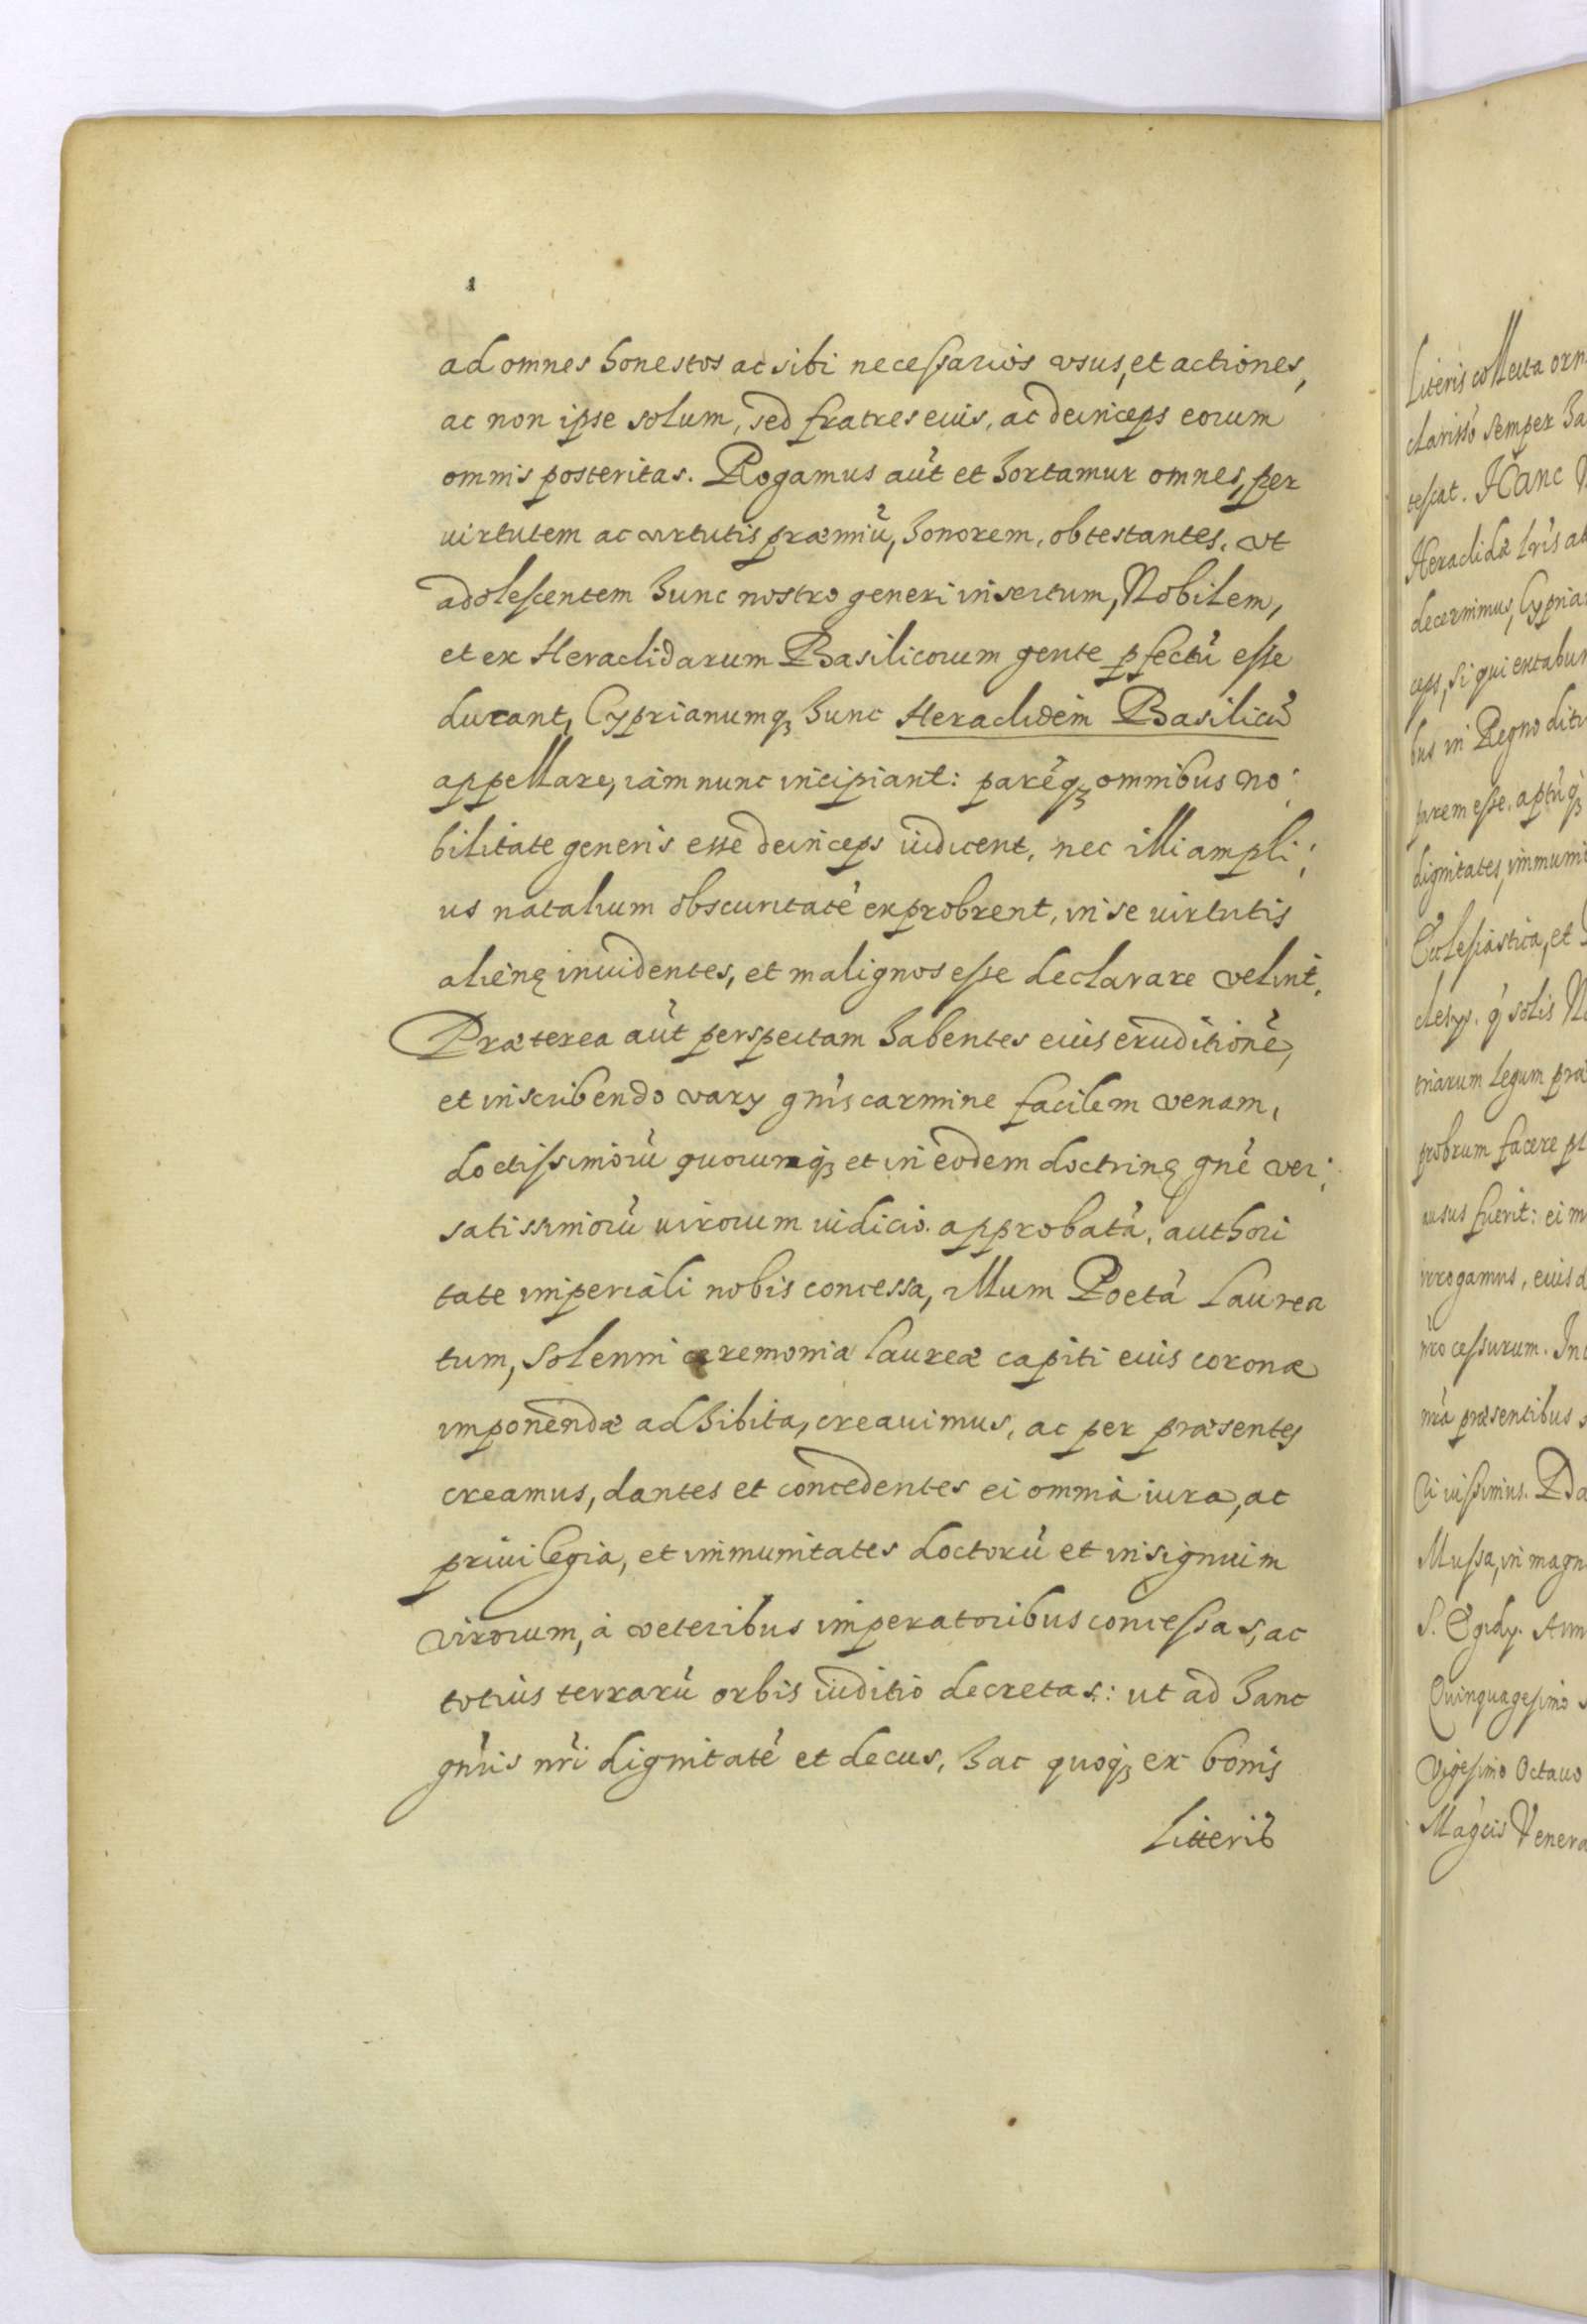 ad omnes honestos ac sibi necessarios vsus, et actiones,
ac non ipse solum, sed fratres eius, ac deinceps eorum
omnis posteritas. Rogamus aũt et hortamur omnes, per
uirtutem ac virtutis præmiũ, honorem, obtestantes, vt
adolescentem hunc nostro generi insertum, Nobilem,
et ex Heraclidarum Basilicorum gente pfectũ esse
ducant, Cyprianumq; hunc Heraclidem Basilicũ
appellare, iam nunc incipiant: parẽq; omnibus no:
bilitate generis esse deinceps iudicent, nec illi ampli:
us natalium obscuritatẽ exprobrent, ni se uirtutis
alienę inuidentes, et malignos esse declarare velint.
Præterea aũt perspectam habentes eius eruditionẽ,
et in scribendo varÿ gñis carmine facilem venam,
doctissimorũ quorumq; et in eodem doctrinę gñe ver:
satissimorũ uirorum iudicio approbatã, authori
tate imperiali nobis concessa, illum Poetã Laurea
tum, solenni ceremonia laureæ capiti eius coronæ
imponendæ adhibita, creauimus, ac per præsentes
creamus, dantes et concedentes ei omnia iura, ac
priuilegia, et immunitates doctorũ et insignium
virorum, à veteribus imperatoribus concessas, ac
totius terrarũ orbis iuditio decretas: ut ad hanc
gñris nr̃i dignitatẽ et decus, hac quoq; ex bonis
Litteris
Literis collecta orn
semper ha
tescat. Hanc
Heraclidæ lr̃is
decernimus, Cypria
ceps, si qui extabun
bus in Regno
parem esse, aptũq;
dignitates, immuni
Ecclesiastica, et
solis
triarum legum præ
probrum facere
ausus fuerit: ei m
irrogamus, eius d
cessurum. In
præsentibus
iussimus. Da
Mussa, in magn
S. Egidÿ. Ann
Quinquagesimo
Vigesimo Octauo
Venera